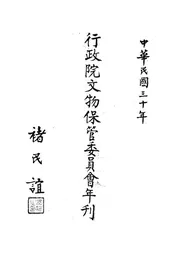 中華民國三十年
行政院文物保管委員會年刊
褚民誼